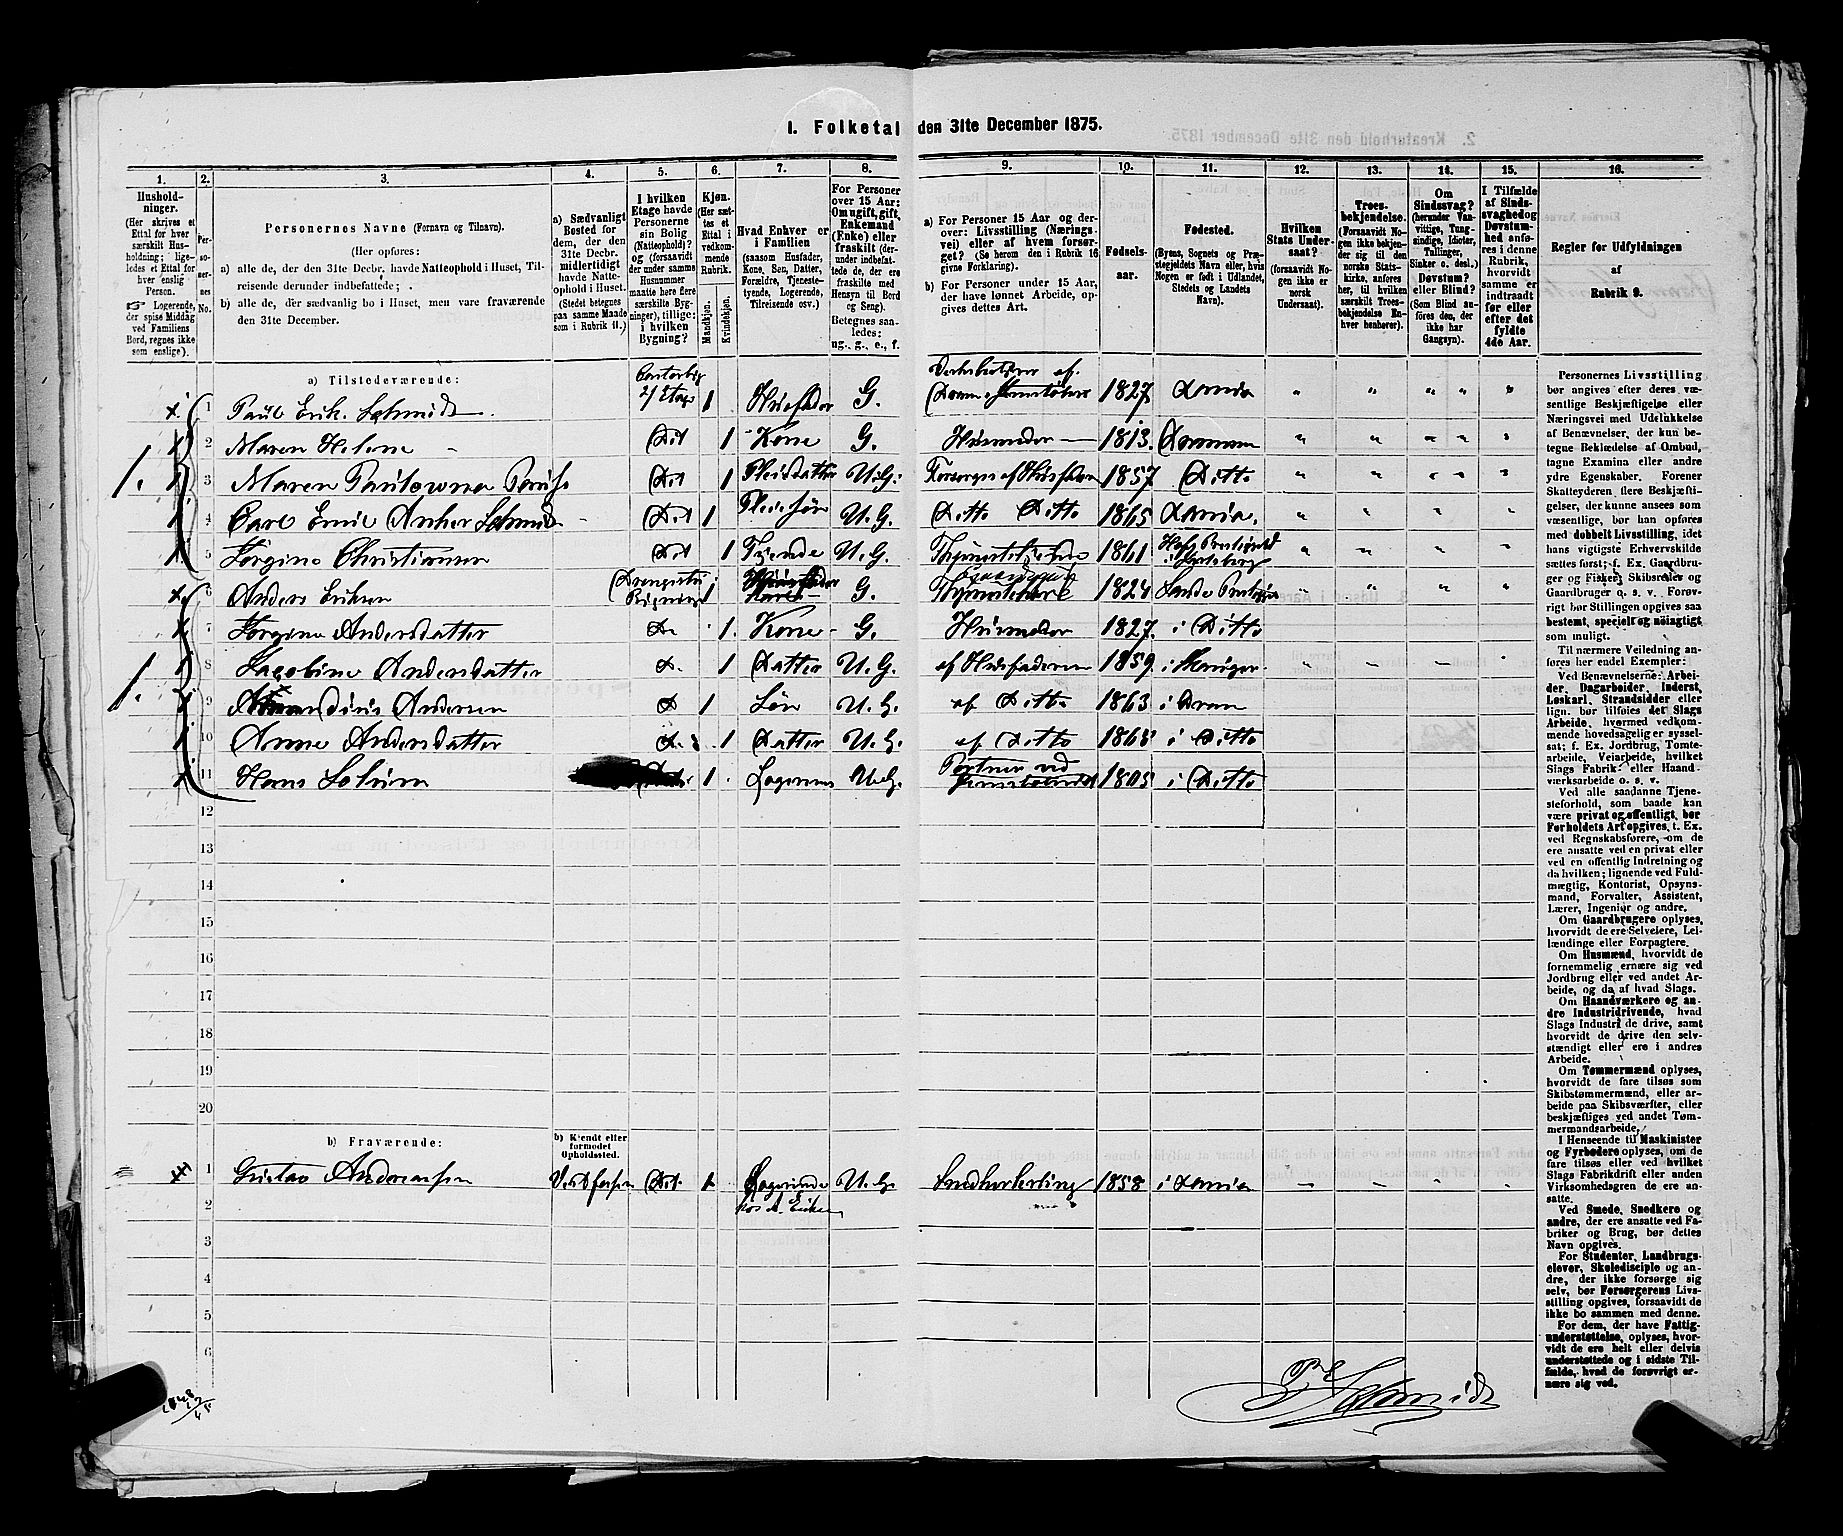 1. Folketal den 31te December 1875.
1. 2. 3. 4. 5. 6. 7. 8. 9. 10. 11. 12. 13. 14. 15. 16.
Hushold-
ninger.
(Her skrives et
Ettal for hver
særskilt Hus-
holdning; lige-
ledes et Ettal for
hver enslig
Person.
☞ Logerende,
der spise Middag
ved Familiens
Bord, regnes ikke
som enslige).
Per-
so-
ner-
nes
No.
Personernes Navne (Fornavn og Tilnavn).
(Her opføres:
a) alle de, der den 31te Decbr. havde Natteophold i Huset, Til-
reisende derunder indbefattede;
b) alle de, der sædvanlig bo i Huset, men vare fraværende
den 31te December.
a) Sædvanligt
Bosted for
dem, der den
31te Decbr.
midlertidigt
havde Natte-
ophold i Huset.
(Stedet betegnes
paa samme Maade
som i Rubrik 11.)
I hvilken
Etage havde
Personerne
sin Bolig
(Natteophold)?
og (forsaavidt
der under samme
Husnummer
maatte høre flere
særskilte Byg-
ninger), tillige:
i hvilken
Bygning?
Kjøn.
(Her sæt-
tes et
Ettal i
vedkom-
mende
Rubrik.
Mandkjøn.
Kvindekjøn.
Hvad Enhver er
i Familien
(saasom Husfader,
Kone, Søn, Datter,
Forældre, Tjeneste-
tyende, Logerende,
Tilreisende osv.)
For Personer
over 15 Aar:
Om ugift, gift,
Enkemand
(Enke) eller
fraskilt (der-
under indbefat-
tede de, der ere
fraskilte med
Hensyn til Bord
og Seng).
Betegnes saa-
ledes:
ug., g., e., f.
a) For Personer 15 Aar og der-
over: Livsstilling (Nærings-
vei) eller af hvem forsør-
get? (Se herom den i Rubrik 16
givne Forklaring).
b) For Personer under 15 Aar,
der have lønnet Arbeide, op-
gives dettes Art.
Fødsels-
aar.
Fødested.
(Byens, Sognets og Præ-
stegjeldets Navn eller, hvis
Nogen er født i Udlandet,
Stedets og Landets
Navn).
Hvilken
Stats Under-
saat?
(forsaavidt No-
gen ikke er
norsk
Undersaat).
Troes-
bekjendelse.
(Forsaavidt No-
gen ikke bekjen-
der sig til den
norske Stats-
kirke, anføres
her, til hvilken
særskilt Troes-
bekjendelse En-
hver henhører).
Om
Sindssvag?
(herunder Van-
vittige, Tung-
sindige, Idioter,
Tullinger,
Sinker o. desl.)
Døvstum?
eller Blind?
(Som Blind an-
føres den, der
ikke har
Gangsyn).
I Tilfælde
af Sinds-
svaghed og
Døvstum-
hed anfø-
res i denne
Rubrik,
hvorvidt
samme er
indtraadt
før eller
efter det
fyldte
4de Aar.
Regler for Udfyldningen
af
Rubrik 9.
a) Tilstedeværende:
1 Paul Erik. Schmidt 2/ Etage 1 Husfader G. 1827 Larvik
2 Maren Helene - Dit 1 Kone G. Husmoder 1813 Drammen
3 Maren Dit 1 Pleiedatter U.G. Forsørges af Husfaderen 1857 Ditto
4 Carl Emil Anker Schmidt Dit 1 Pleiesøn U.G. Ditto Ditto 1865
5 Jørgine Christiansen Dit 1 Tjende U.G. 1861
6 Anders Eriksen 1 G. 1824 Sande
7 Jørgine Andersdatter D. 1 Kone G. Husmoder 1827 i Ditto
8 Jacobine Andersdatter D. 1 Datter U.G. af Husfaderen 1859
9 Andersen D 1 Søn U.G. af Ditto 1863 i Dram
10 Anne Andersdatter D. 1 Datter U.G. af Ditto 1868 i Ditto
11 Hans 1 Logerende U.G. i Ditto
12
13
14
15
16
17
18
19
20
b) Fraværende:
b) Kjendt eller
formodet
Opholdssted.
1 Gustav Andreassen Dit. 1 Logerende U.G. 1858
hos A. Eriksen
2
3
4
5
6
P E Schmidt
Personernes Livsstilling
bør angives efter deres væ-
sentlige Beskjæftigelse eller
Næringsvei med Udelukkelse
af Benævnelser, der kun be-
tegne Beklædelse af Ombud,
tagne Examina eller andre
ydre Egenskaber. Forener
Skatteyderen flere Beskjæfti-
gelser, der kunne ansees som
væsentlige, bør han opføres
med dobbelt Livsstilling, idet
hans vigtigste Erhvervskilde
sættes først; f. Ex. Gaardbru-
ger og Fisker; Skibsreder og
Gaardbruger o. s. v. Forøv-
rigt bør Stillingen opgives saa
bestemt, specielt og nøiagtigt
som muligt.
Til nærmere Veiledning an-
føres her endel Exempler:
Ved Benævnelserne: Arbei-
der, Dagarbeider, Inderst,
Løskarl, Strandsidder eller
lign. bør tilføies det Slags
Arbeide, hvormed vedkom-
mende hovedsagelig er syssel-
sat; f. Ex. Jordbrug, Tomte-
arbeide, Veiarbeide, hvilket
Slags Fabrik- eller Haand-
værksarbeide o. s. v.
Ved alle saadanne Tjene-
steforhold, som baade kan
være privat og offentligt, bør
Forholdets Art opgives, t. Ex.
ved Regnskabsførere, om de
ere ansatte ved en privat eller
ved en offentlig Indretning og
da hvilken; lignende ved Fuld-
mægtig, Kontorist, Opsyns-
mand, Forvalter, Assistent,
Lærer, Ingeniør og andre.
Om Gaardbrugere oplyses,
hvorvidt de ere Selveiere, Lei-
lændinge eller Forpagtere.
Om Husmænd, hvorvidt de
fornemmelig ernære sig ved
Jordbrug eller ved andet Ar-
beide, og da af hvad Slags.
Om Haandværkere og an-
dre Industridrivende, hvad
Slags Industri de drive, samt
hvorvidt de drive den selv-
stændigt eller ere i andres
Arbeide.
Om Tømmermænd oplyses,
hvorvidt de fare tilsøs som
Skibstømmermænd, eller ar-
beide paa Skibsværfter, eller
beskjæftiges ved andet Tøm-
mermandsarbeide.
I Henseende til Maskinister
og Fyrbødere oplyses, om de
fare tilsøs eller ved hvilket
Slags Fabrikdrift eller anden
Virksomhedsgren de ere an-
satte.
Ved Smede, Snedkere og
andre, der ere ansatte ved Fa-
briker og Brug, bør dettes
Navn opgives.
For Studenter, Landbrugs-
elever, Skoledisciple og an-
dre, der ikke forsørge sig
selv, bør Forsørgerens Livs-
stilling opgives, forsaavidt de
ikke bo sammen med denne.
For dem, der have Fattig-
understøttelse, oplyses, hvor-
vidt de ere helt eller delvis
understøttede og i sidste Til-
fælde, hvad de forøvrigt er-
nære sig ved.